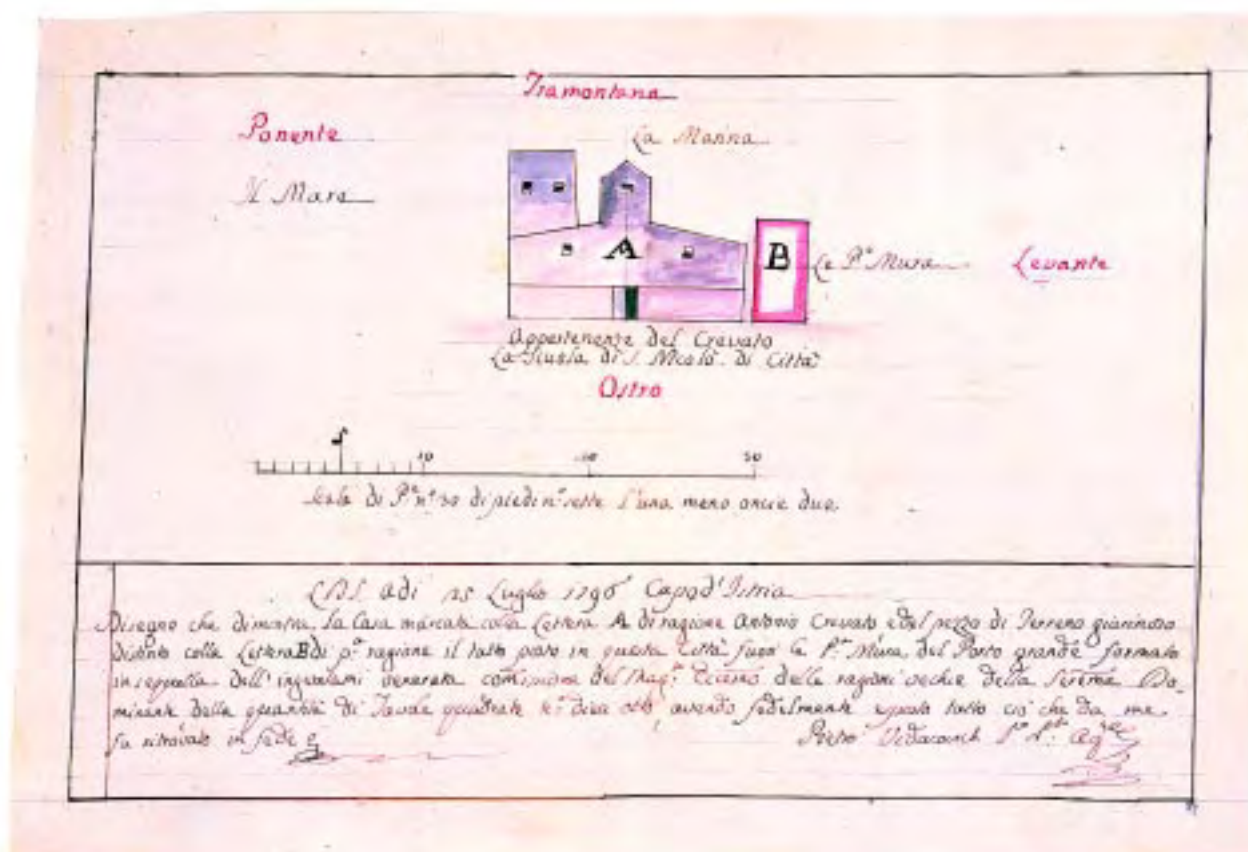 Tramontana
Ponente
La Marina
Il Mare
A
B
Le P.e Mura
Levante
Appartenente del Crevato
La Scuola di S. Nicolò di Città
Ostro
10
20
30
Scala di P.e n.o 30 di piedi n.o sette l'una meno oncie due
adi 25 Luglio 1796 Capod'Istria
Disegno che dimostra la Casa marcata colla Lettera A di ragione Antonio Crevato e del pezzo di Terreno
distinto colla Lettera B di p.a ragione il tutto posto in questa Città fuori le P.e Mura del Porto grande formato
in venerata comissione del Mag.o delle ragioni vechie della Serma Do-
minante della quantità di Tavole quadrate n.o dieci otto, avendo fedelmente tutto ciò che da me
fu ritrovato in fede
Pietro